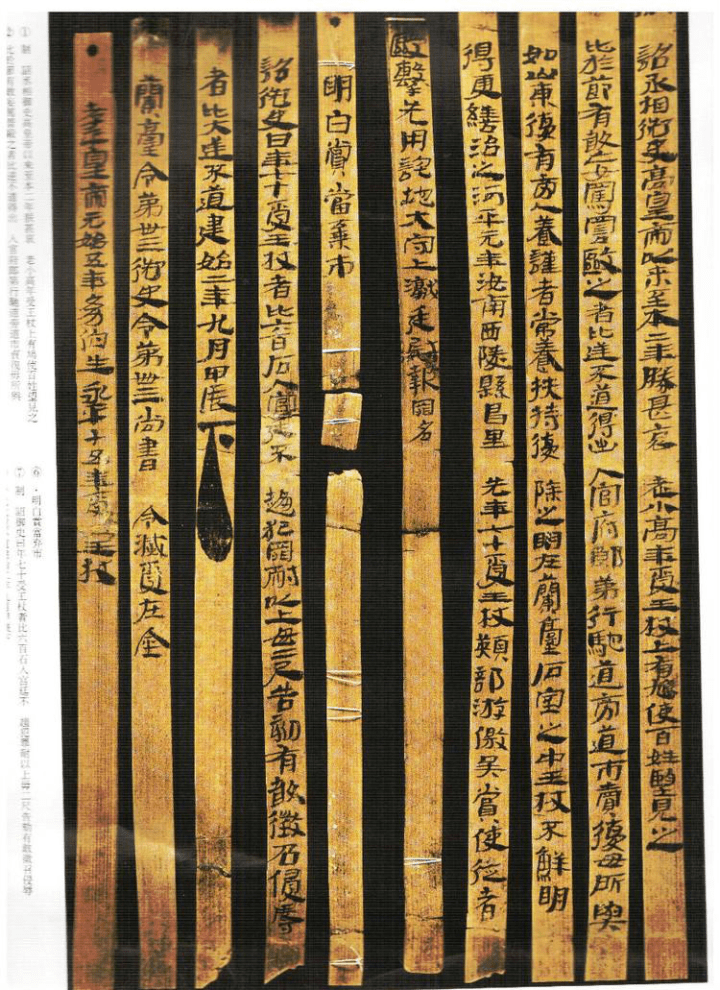 詔丞相御史高皇帝以來至本二年勝甚哀 老小高年受王杖上有鳩使百姓望見之
比於節有敢妄罵詈毆之者比逆不道得出 入官府郎第行馳道旁道市賣復毋所與
如山東復有旁人養謹者常養扶持復 除之明在蘭臺石室之中王杖不鮮明
得更繕治之河平元年汝南西陵縣昌里 先年七十受王杖熲部游徼吳賞使從者
毆擊先用詫地大守上讞廷尉報罪名
明白賞當棄市
詔御史曰年七十受王杖者比六百石入宮廷不 趨犯罪耐以上毋二尺告劾有敢徵召侵辱
者比大逆不道建始二年九月甲辰下
蘭臺令第卅三御史令第卌三尚書 令滅受在金
孝平皇帝元始五年幼伯生永平十五年受王杖
① 制 詔丞相御史高皇帝以來至本二年朕甚哀 老小高年受王杖上有鳩使百姓望見之
⑥ ・明白賞當弃市
⑦ 制 詔御史曰年七十受王杖者比六百石入宮廷不 趨犯罪耐以上毋二尺告劾有敢徵召侵辱